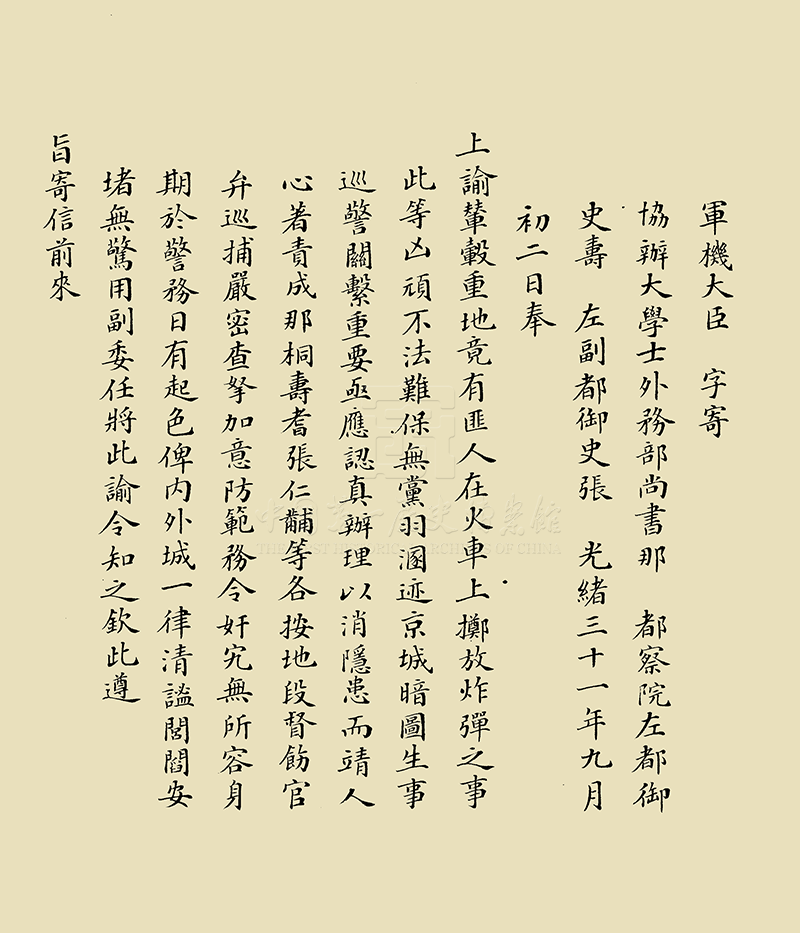 軍機大臣　字寄
協辦大學士外務部尚書那　都察院左都御
史壽　左副都御史張　光緒三十一年九月
初二日奉
上諭輦轂重地竟有匪人在火車上擲放炸彈之事
此等凶頑不法難保無黨羽溷迹京城暗圖生事
巡警關繫重要亟應認真辦理以消隱患而靖人
心著責成那桐壽耆張仁黼等各按地段督飭官
弁巡捕嚴密查拏加意防範務令奸宄無所容身
期於警務日有起色俾內外城一律清謐閭閻安
堵無驚用副委任將此諭令知之欽此遵
旨寄信前來
中國第一歷史檔案館
THE FIRST HISTORICAL ARCHIVES OF CHINA